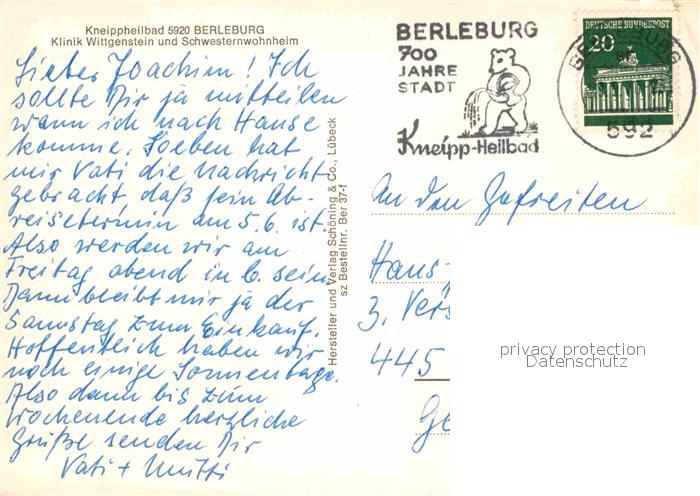 Kneippheilbad 5920 BERLEBURG
Klinik Wittgenstein und Schwesternwohnheim
Lieber Joachim! Ich
sollte Dir ja mitteilen
wann ich nach Hause
komme. Soeben hat
mir Vati die Nachricht
gebracht, daß sein Ab-
reisetermin am 5.6. ist.
Also werden wir am
Freitag abend in C. sein.
Dann bleibt mir ja der
Samstag zum Einkauf.
Hoffentlich haben wir
noch einige Sonnentage.
Also dann bis zum
Wochenende herzliche
Grüße senden Dir
Vati + Mutti
Hersteller und Verlag Schöning & Co., Lübeck
sz Bestellnr. Ber 37-f
BERLEBURG
700
JAHRE
STADT
Kneipp-Heilbad
DEUTSCHE BUNDESPOST
20
BERLEBURG
592
An den Gefreiten
Hans-
3. Vers
445
Ge
privacy protection
Datenschutz